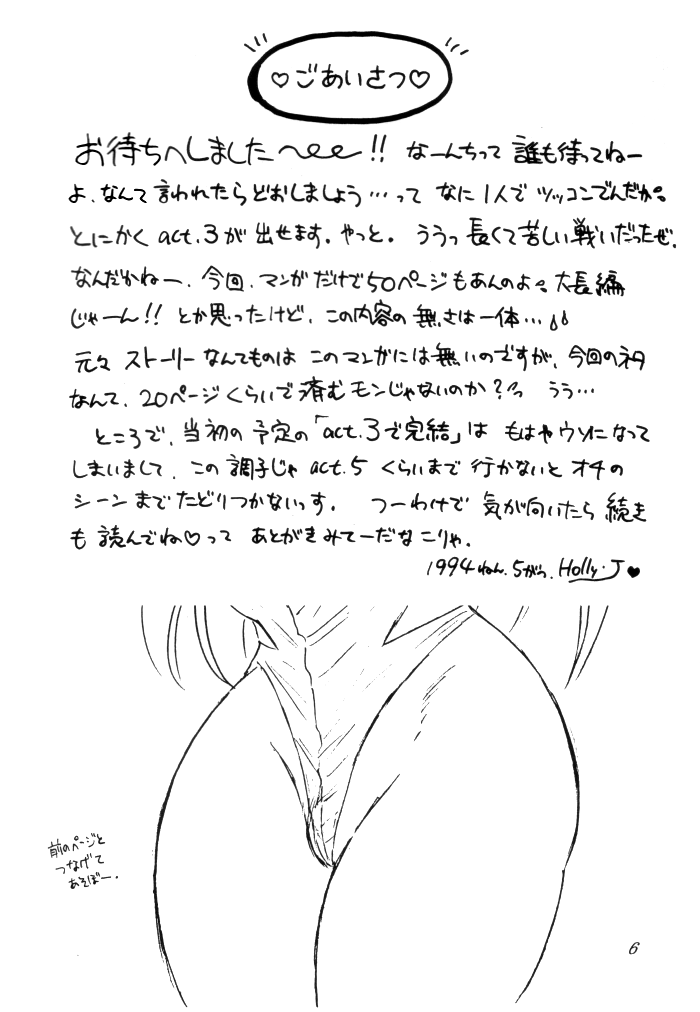 ♡ごあいさつ♡
お待ちへしました〜!! なーんちって 誰も待ってねー
よ、なんて言われたらどおしましょう…って なに1人で ツッコンでんだか。
とにかく act.3が 出せます。やっと。 ううっ 長くて苦しい戦いだったぜ。
なんだかねー、今回、マンガだけで50ページもあんのよ。大長編
じゃーん!! とか思ったけど、この内容の 無さは一体…
元々 ストーリーなんてものは このマンガには無いのですが、今回のネタ
なんて、20ページくらいで済むモンじゃないのか?っ うう…
ところで、当初の 予定の「act.3で完結」は もはやウソになって
しまいまして、この 調子じゃ act.5 くらいまで 行かないと オチの
シーンまでたどりつかないっす。 つーわけで 気が向いたら 続き
も 読んでね♡って あとがきみてーだなこりゃ。
1994ねん.5がつ. Holly・J♥
前のページと
つなげて
あそぼー.
6